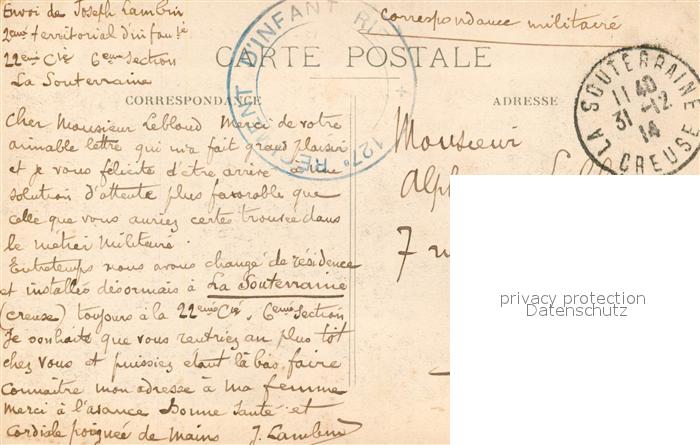 Envoi de Joseph Lambin
2eme territorial d'infanie
22eme Cie 6eme Section
La Souterraine
Correspondance militaire
127e REGIMENT D'INFANTERIE
CARTE POSTALE
CORRESPONDANCE
ADRESSE
LA SOUTERRAINE
11 40
31-12
14
CREUSE
Cher Monsieur Leblond Merci de votre
aimable lettre qui m'a fait grand plaisir
et je vous félicite d'etre arrivé à une
solution d'attente plus favorable que
celle que vous auriez certes trouvée dans
le métier Militaire.
Entretemps nous avons changé de résidence
et installés désormais à La Souterraine
(creuse) toujours à la 22eme Cie, 6eme Section
Je souhaite que vous rentriez au plus tôt
chez vous et puissiez étant là bas, faire
connaitre mon adresse à ma femme
Merci à l'avance Bonne Santé et
Cordiale poignée de Mains J. Lambin
Monsieur
7
privacy protection
Datenschutz